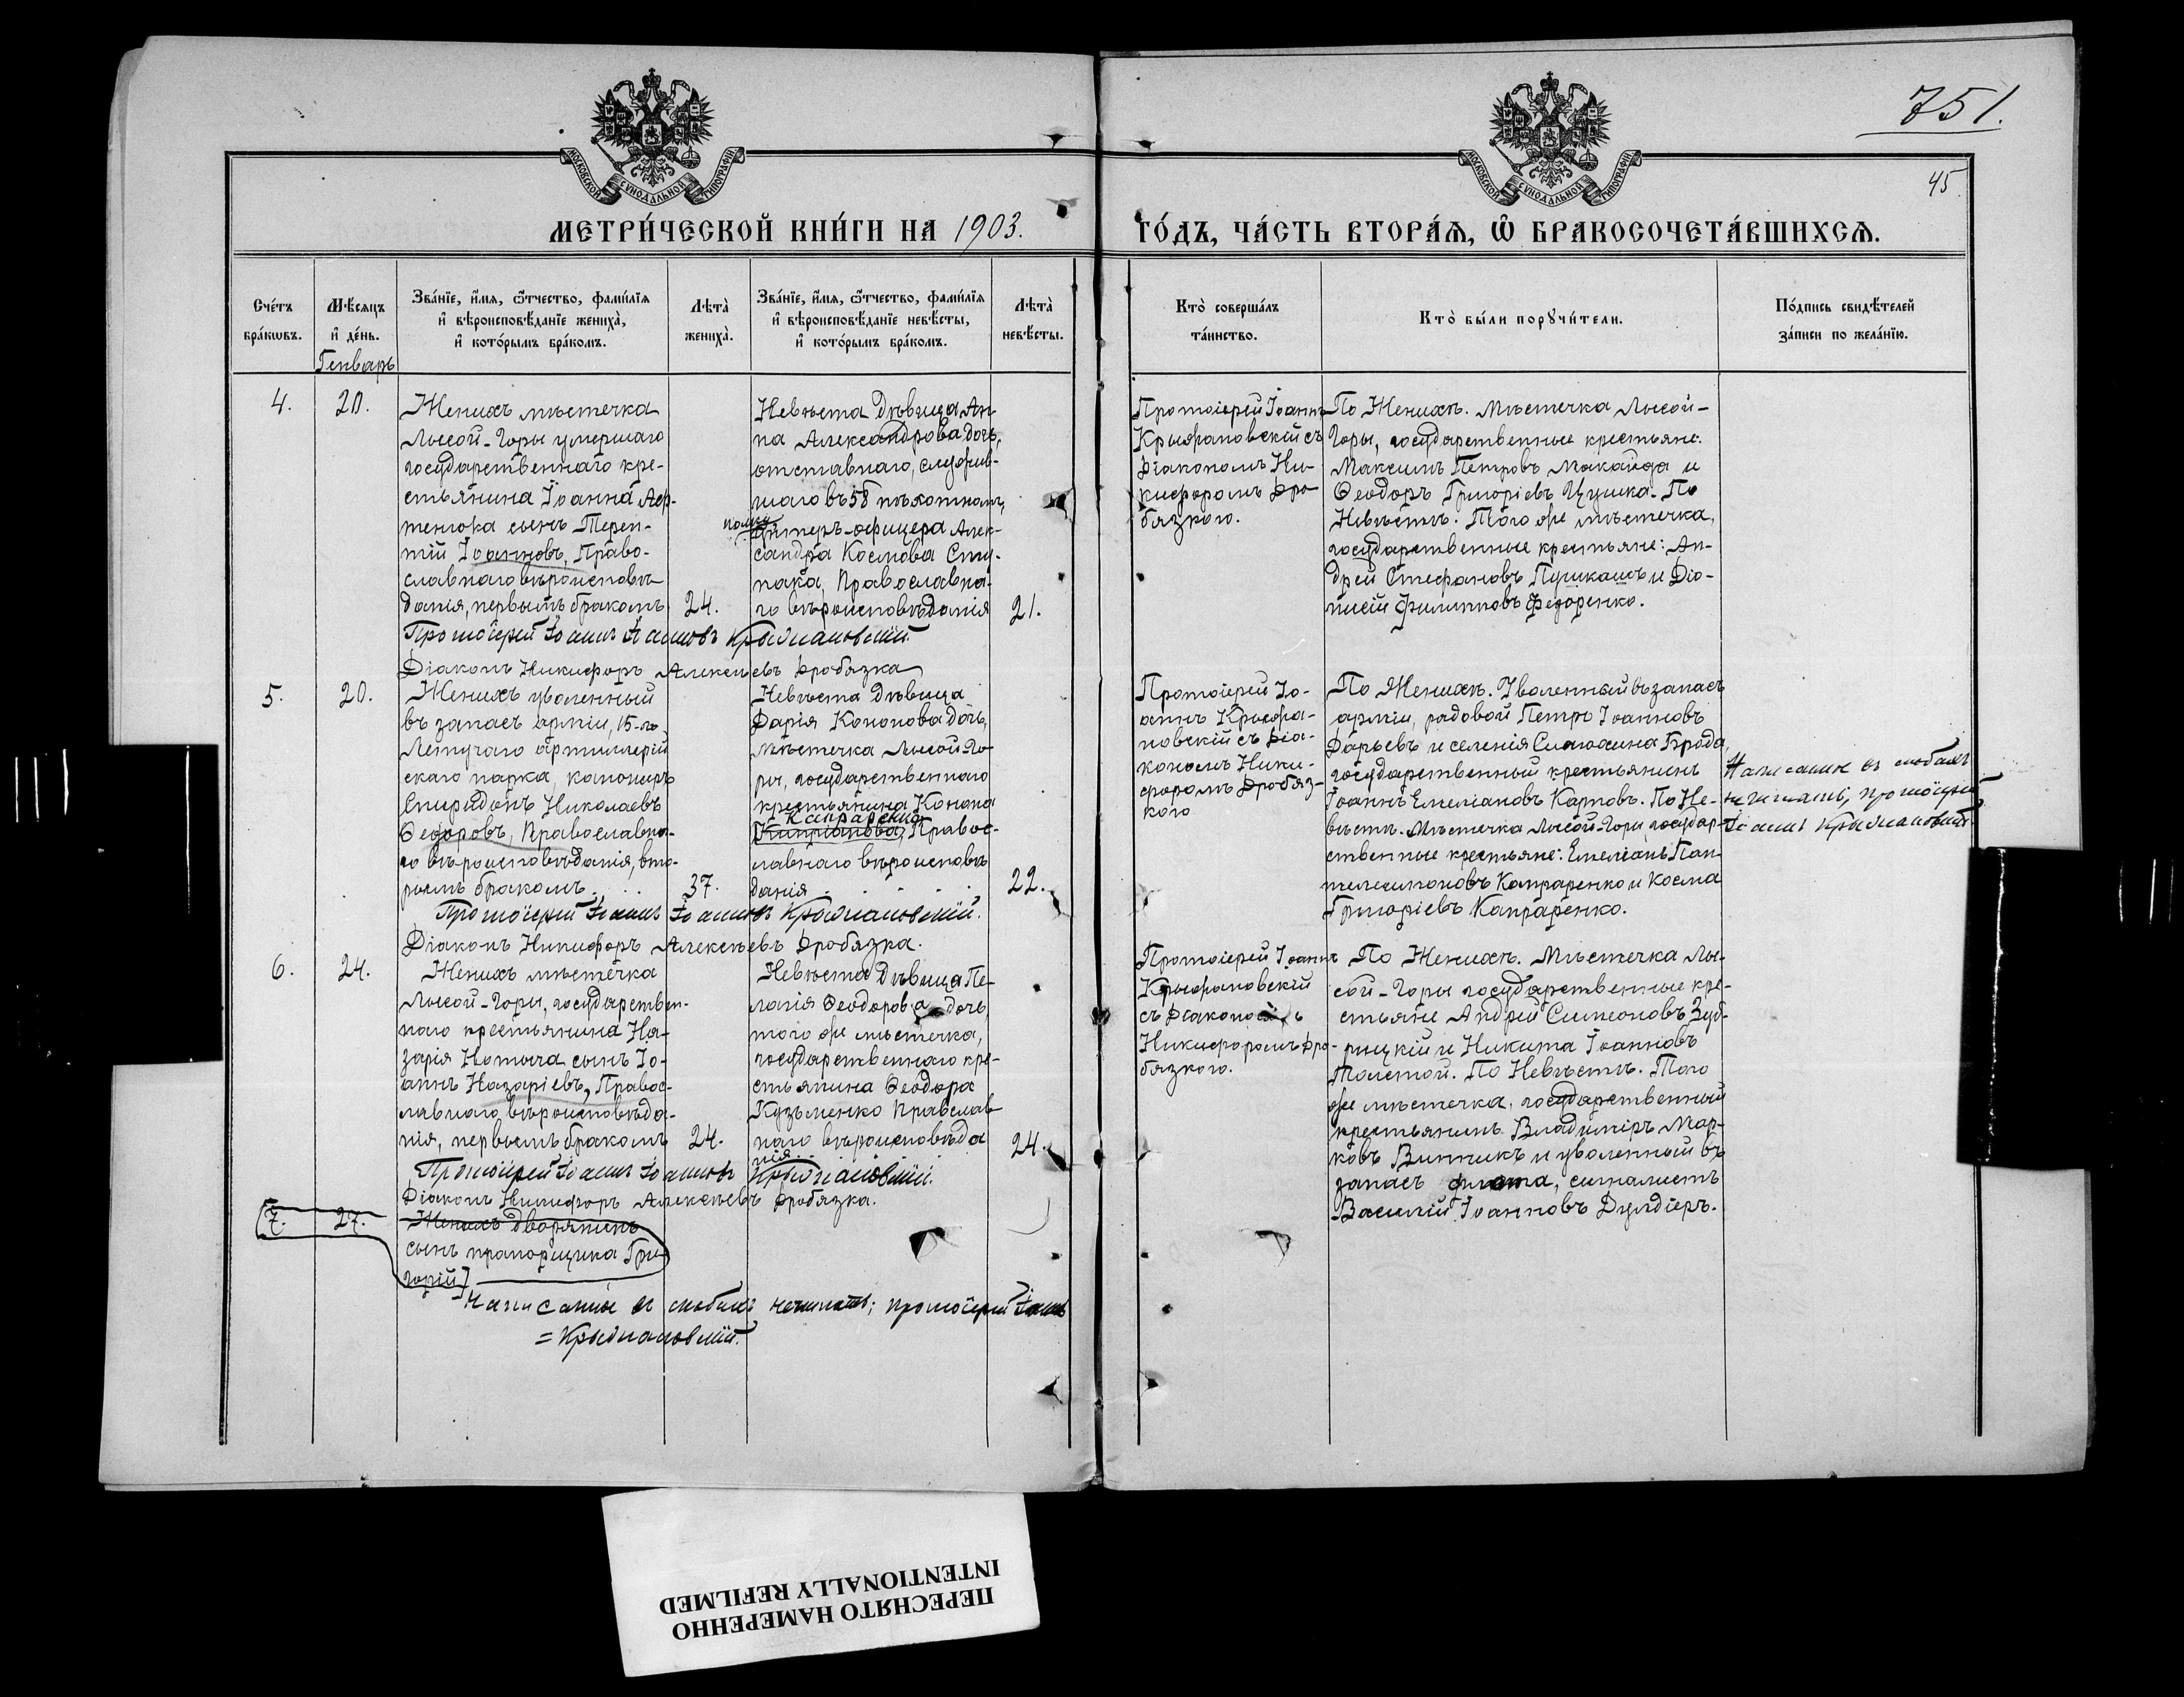 751.
45.
МОСКОВСКОЙ СѴНОДАЛЬНОЙ ТИПОГРАФІИ
МОСКОВСКОЙ СѴНОДАЛЬНОЙ ТИПОГРАФІИ
МЕТРИ́ЧЕСКОЙ КНИ́ГИ НА 1903. ГО́ДЪ, ЧА́СТЬ ВТОРА́Ѧ, Ѽ БРАКОСОЧЕТА́ВШИХСѦ.
Сче́тъ
бра́кѡвъ.
Мѣ́сѧцъ
и҆ де́нь.
Генварь
Зва́нїе, и҆́мѧ, ѻ҆́тчество, фами́лїѧ
и҆ вѣроисповѣ́данїе жениха̀,
и҆ кото́рымъ бра́комъ.
Лѣта̀
жениха̀.
Зва́нїе, и҆́мѧ, ѻ҆́тчество, фами́лїѧ
и҆ вѣроисповѣ́данїе невѣ́сты,
и҆ кото́рымъ бра́комъ.
Лѣта̀
невѣ́сты.
Кто̀ соверша́лъ
та́инство.
Кто̀ бы́ли порꙋчи́тели.
По́дпись свидѣ́телей
за́писи по жела́нїю.
4.
20.
Женихъ мѣстечка
Лысой-Горы умершаго
государственнаго кре-
стьянина Іоанна
сынъ Терен-
тій Іоанновъ, Право-
славнаго вѣроисповѣ-
данія, первымъ бракомъ
24.
Невѣста дѣвица Ан-
на Александрова дочь,
отставнаго, служив-
шаго въ 58 пѣхотномъ,
полку
Унтеръ-офицера Алек-
сандра Космова Сту-
пака, Православна-
го вѣроисповѣданія
21.
Протоіерей Іоаннъ
Крыжановскій съ
Діакономъ Ни-
кифоромъ Дро-
бязкого.
По Женихѣ. Мѣстечка Лысой-
Горы, государственные крестьяне:
Максимъ Петровъ Макайда и
Ѳеодоръ Григоріевъ Цушка. По
Невѣстѣ. Того же мѣстечка,
государственные крестьяне: Ан-
дрей Стефановъ Пушкашъ и Діо-
нисій Филипповъ Федоренко.
Протоіерей Іоаннъ Іоанновъ Крыжановскій.
Діаконъ Никифоръ Алексѣевъ Дробязка
5.
20.
Женихъ уволенный
въ запасъ арміи, 15-го
Летучаго артиллерій
скаго парка, канониръ
Спиридонъ Николаевъ
Ѳедоровъ, Православна-
го вѣроисповѣданія, вто-
рымъ бракомъ . . .
37.
Невѣста дѣвица
Дарія Кононова дочь,
мѣстечка Лысой Го-
ры, государственнаго
крестьянина Конона
Капраренко
Кипріанова, Правос-
лавнаго вѣроисповѣ
данія . . . . .
22.
Протоіерей Іо-
аннъ Крыжа-
новскій съ Діа-
кономъ Ники-
форомъ Дробяз-
кого
По Женихѣ. Уволенный въ запасъ
арміи, рядовой Петръ Іоанновъ
Фарьевъ и селенія Синюхина Брода,
государственный крестьянинъ
Іоаннъ Емеліановъ Карповъ. По Не-
вѣстѣ. Мѣстечка Лысой-Горы, государ-
ственные крестьяне: Емеліанъ Пан-
телеимоновъ Капраренко и Косма
Григоріевъ Капраренко.
Написанное въ скобахъ
не читать, протоіерей
Іоаннъ Крыжановскій.
Протоіерей Іоаннъ Іоанновъ Крыжановскій.
Діаконъ Никифоръ Алексѣевъ Дробязка.
6.
24.
Женихъ мѣстечка
Лысой-Горы, государствен-
наго крестьянина На-
зарія Нотыча сынъ Іо-
аннъ Назаріевъ, Правос-
лавнаго вѣроисповѣда-
нія, первымъ бракомъ
24.
Невѣста дѣвица Пе-
лагія Ѳеодорова дочь,
того же мѣстечка,
государственнаго кре-
стьянина Ѳеодора
Кузьменко Православ
наго вѣроисповѣда
нія. . .
24.
Протоіерей Іоаннъ
Крыжановскій
съ Діакономъ
Никифоромъ Дро-
бязкого.
По Женихѣ. Мѣстечка Лы-
сой-Горы государственные кре-
стьяне Андрей Симеоновъ
и Никита Іоанновъ
Толстой. По Невѣстѣ. Того
же мѣстечка, государственный
крестьянинъ Владиміръ Мар-
ковъ Винникъ и уволенный въ
запасъ флота, сигналистъ
Василій Іоанновъ Дулдіеръ.
Протоіерей Іоаннъ Іоанновъ Крыжановскій.
Діаконъ Никифоръ Алексѣевъ Дробязка.
7.
27.
Женихъ Дворянинъ
сынъ прапорщика Гри-
горій]
Написанное въ скобахъ не читать; протоіерей Іоаннъ
= Крыжановскій.
ПЕРЕСНЯТО НАМЕРЕННО
INTENTIONALLY REFILMED